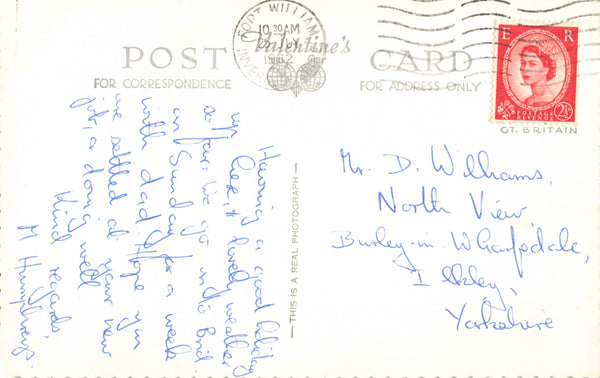 POST CARD
Valentine's
FOR CORRESPONDENCE
FOR ADDRESS ONLY
FORT WILLIAM
10.30AM
1962
INVER
E R
POSTAGE
REVENUE
2½D
GT. BRITAIN
Having a good holiday
up here, & lovely weather
so far. We go to
on Sunday for a week
with dad. Hope you
are settled at your new
job, & doing well
Kind regards,
M Humphreys.
— THIS IS A REAL PHOTOGRAPH —
Mr. D. Williams,
North View,
Burley-in-Wharfedale,
Ilkley,
Yorkshire